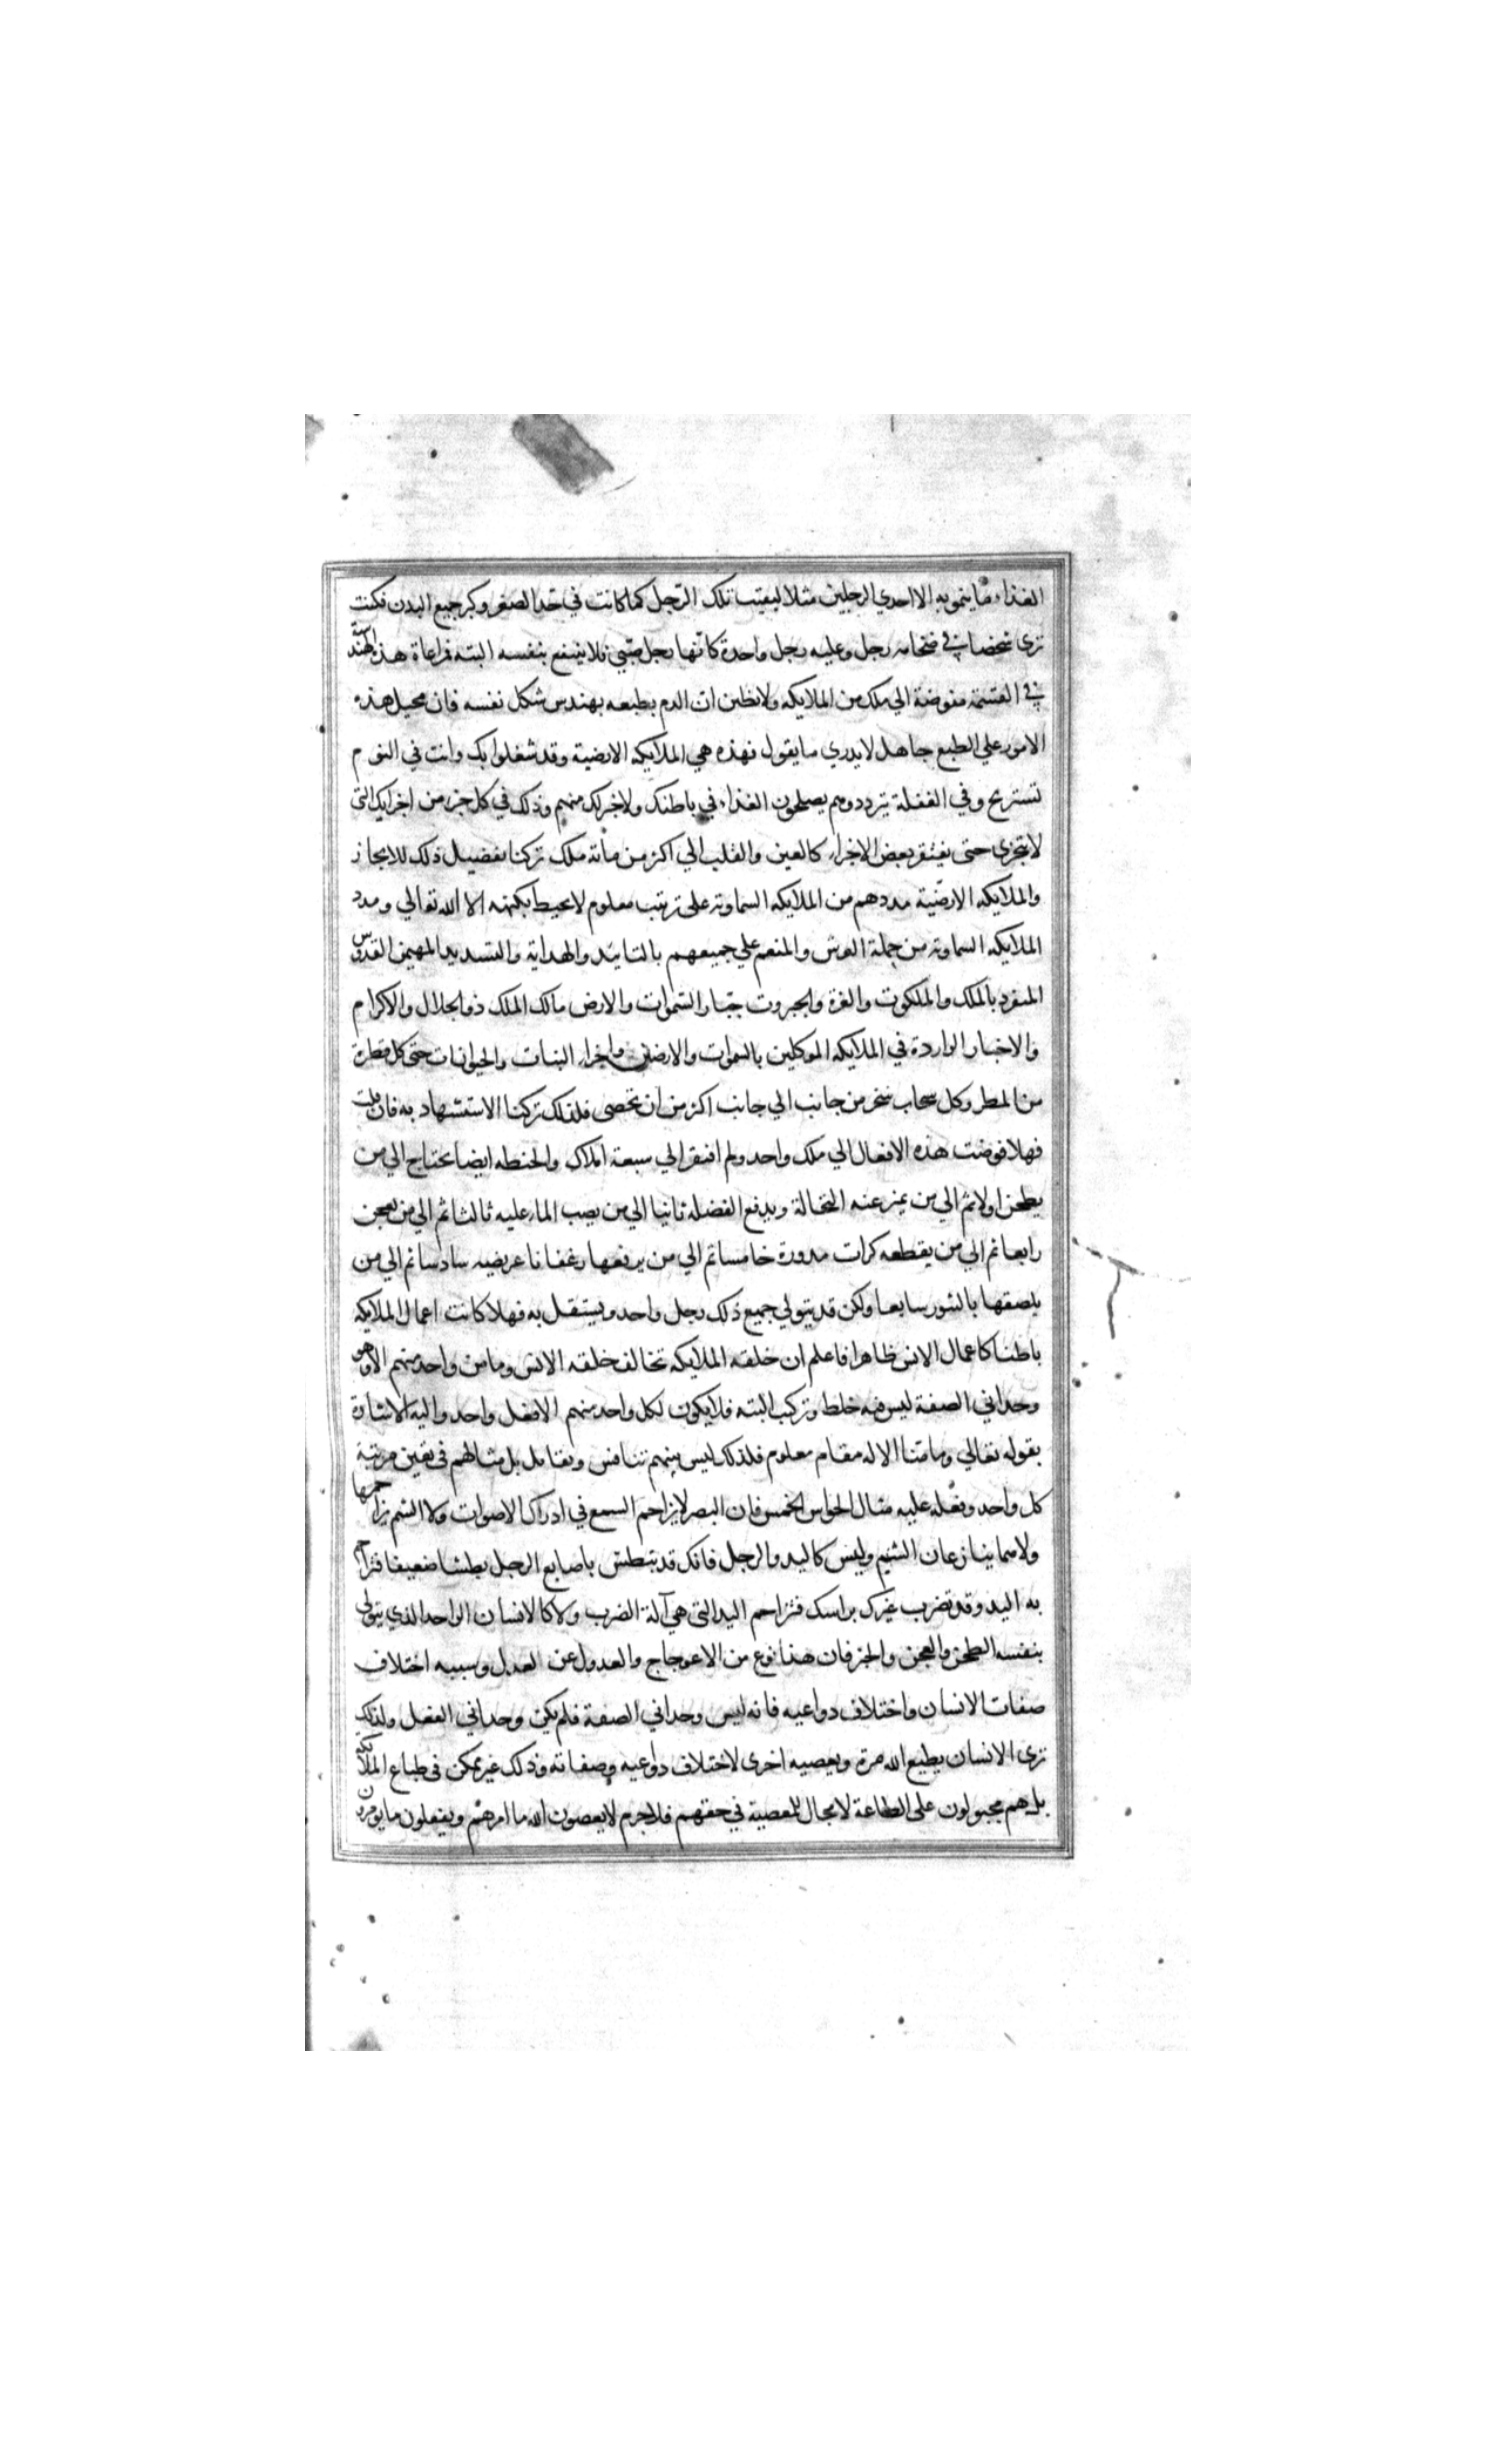 الغذاء ما ينمو به الا احدي الرجلين مثلا لبقيت تلك الرّجل كما كانت في حد الصغر وكبر جميع البدن فكنت
تري شخصا في ضخامه رجل وعليه رجل واحدة كانّها رجل صبي فلا ينتفع بنفسه البته فراعاة هذه الهندسة
في القسمة مفوضة الي ملك من الملايكه ولا تظن ان الدم بطبعه يهندس شكل نفسه فان محيل هذه
الامور علي الطبع جاهل لا يدري ما يقول فهذه هي الملايكه الارضية وقد شغلوا بك وانت في النوم
تستريح وفي الغفلة تتردد وهم يصلحون الغذاء في باطنك ولا خبر لك منهم وذلك في كل جزء من اجزايك التي
لا يتجزي حتى يفتقر بعض الاجزاء كالعين والقلب الي اكثر من مائة ملك تركنا تفضيل ذلك للايجاز
والملايكه الارضيّة مددهم من الملايكه السماوية على ترتيب معلوم لا يحيط بكنهه الا الله تعالي ومدد
الملايكه السماوية من حملة العرش والمنعم علي جميعهم بالتاييد والهداية والتسديد المهيمن القدوس
المنفرد بالملك والملكوت والعزة والجبروت جبّار السّموات والارض مالك الملك ذو الجلال والاكرام
والاخبار الواردة في الملايكه الموكلين بالسموات والارضين واجزاء النبات والحيوانات حتى كل قطرة
من المطر وكل سحاب ينجر من جانب الي جانب اكثر من ان تحصي فلذلك تركنا الاستشهاد به فان قلت
فهلا فوضت هذه الافعال الي ملك واحد ولم افتقر الي سبعة املاك والحنطه ايضا يحتاج الي من
يطحن اولا ثم الي من يميز عنه النخالة ويدفع الفضله ثانيا الي من يصب الماء عليه ثالثا ثم الي من يعجن
رابعا ثم الي من يقطعه كرات مدورة خامسا ثم الي من يرقعها رغفانا عريضه سادسا ثم الي من
يلصقها بالتنور سابعا ولكن قد يتولي جميع ذلك رجل واحد ويستقل به فهلا كانت اعمال الملايكه
باطنا كاعمال الانس ظاهرا فاعلم ان خلقه الملايكه تخالف خلقه الانس وما من واحد منهم الا وهو
وحداني الصفة ليس فيه خلط وتركيب البته فلا يكون لكل واحد منهم الا فعل واحد واليه الاشارة
بقوله تعالي وما منّا الا له مقام معلوم فلذلك ليس بينهم تنافس وتقاتل بل مثالهم في تعين مرتبة
كل واحد وفعله عليه مثال الحواس الخمس فان البصر لا يزاحم السمع في ادراك الاصوات ولا الشم يزاحمها
ولا هما ينازعان الشم وليس كاليد والرجل فانك قد تبطش باصابع الرجل بطشا ضعيفا فتزاحم
به اليد وقد تضرب غيرك براسك فتزاحم اليد التي هي آلة الضرب ولا كالانسان الواحد الذي يتولي
بنفسه الطحن والعجن والخبز فان هذا نوع من الاعوجاج والعدول عن العدل وسببه اختلاف
صفات الانسان واختلاف دواعيه فانه ليس وحداني الصفة فلم يكن وحداني الفعل ولذلك
تري الانسان يطيع الله مرة ويعصيه اخرى لاختلاف دواعيه وصفاته وذلك غير ممكن في طباع الملائكه
بل هم مجبولون على الطاعة لا مجال للمعصية في حقهم فلا جرم لا يعصون الله ما امرهم ويفعلون ما يومرون